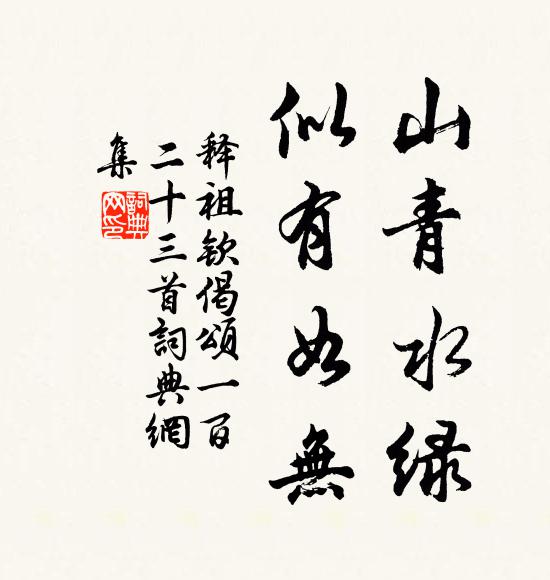 山青水绿
似有如無
释祖钦偈頌一百
二十三首詞典網
集
詞典
网印